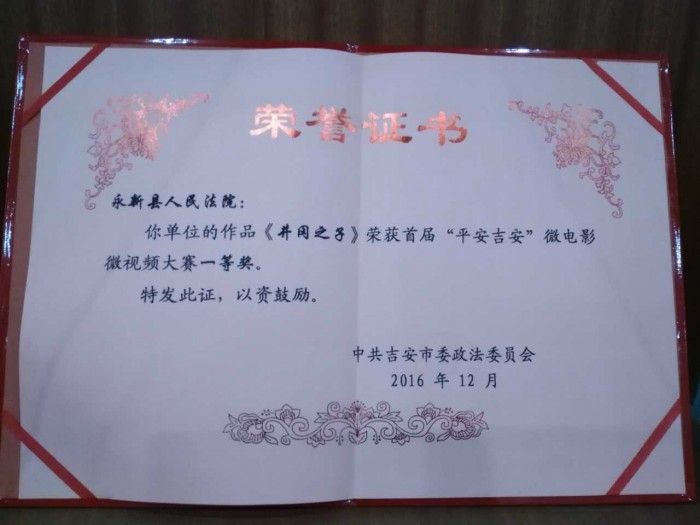 荣誉证书
永新县人民法院：
你单位的作品《井冈之子》荣获首届“平安吉安”微电影
微视频大赛一等奖。
特发此证，以资鼓励。
中共吉安市委政法委员会
2016 年 12 月